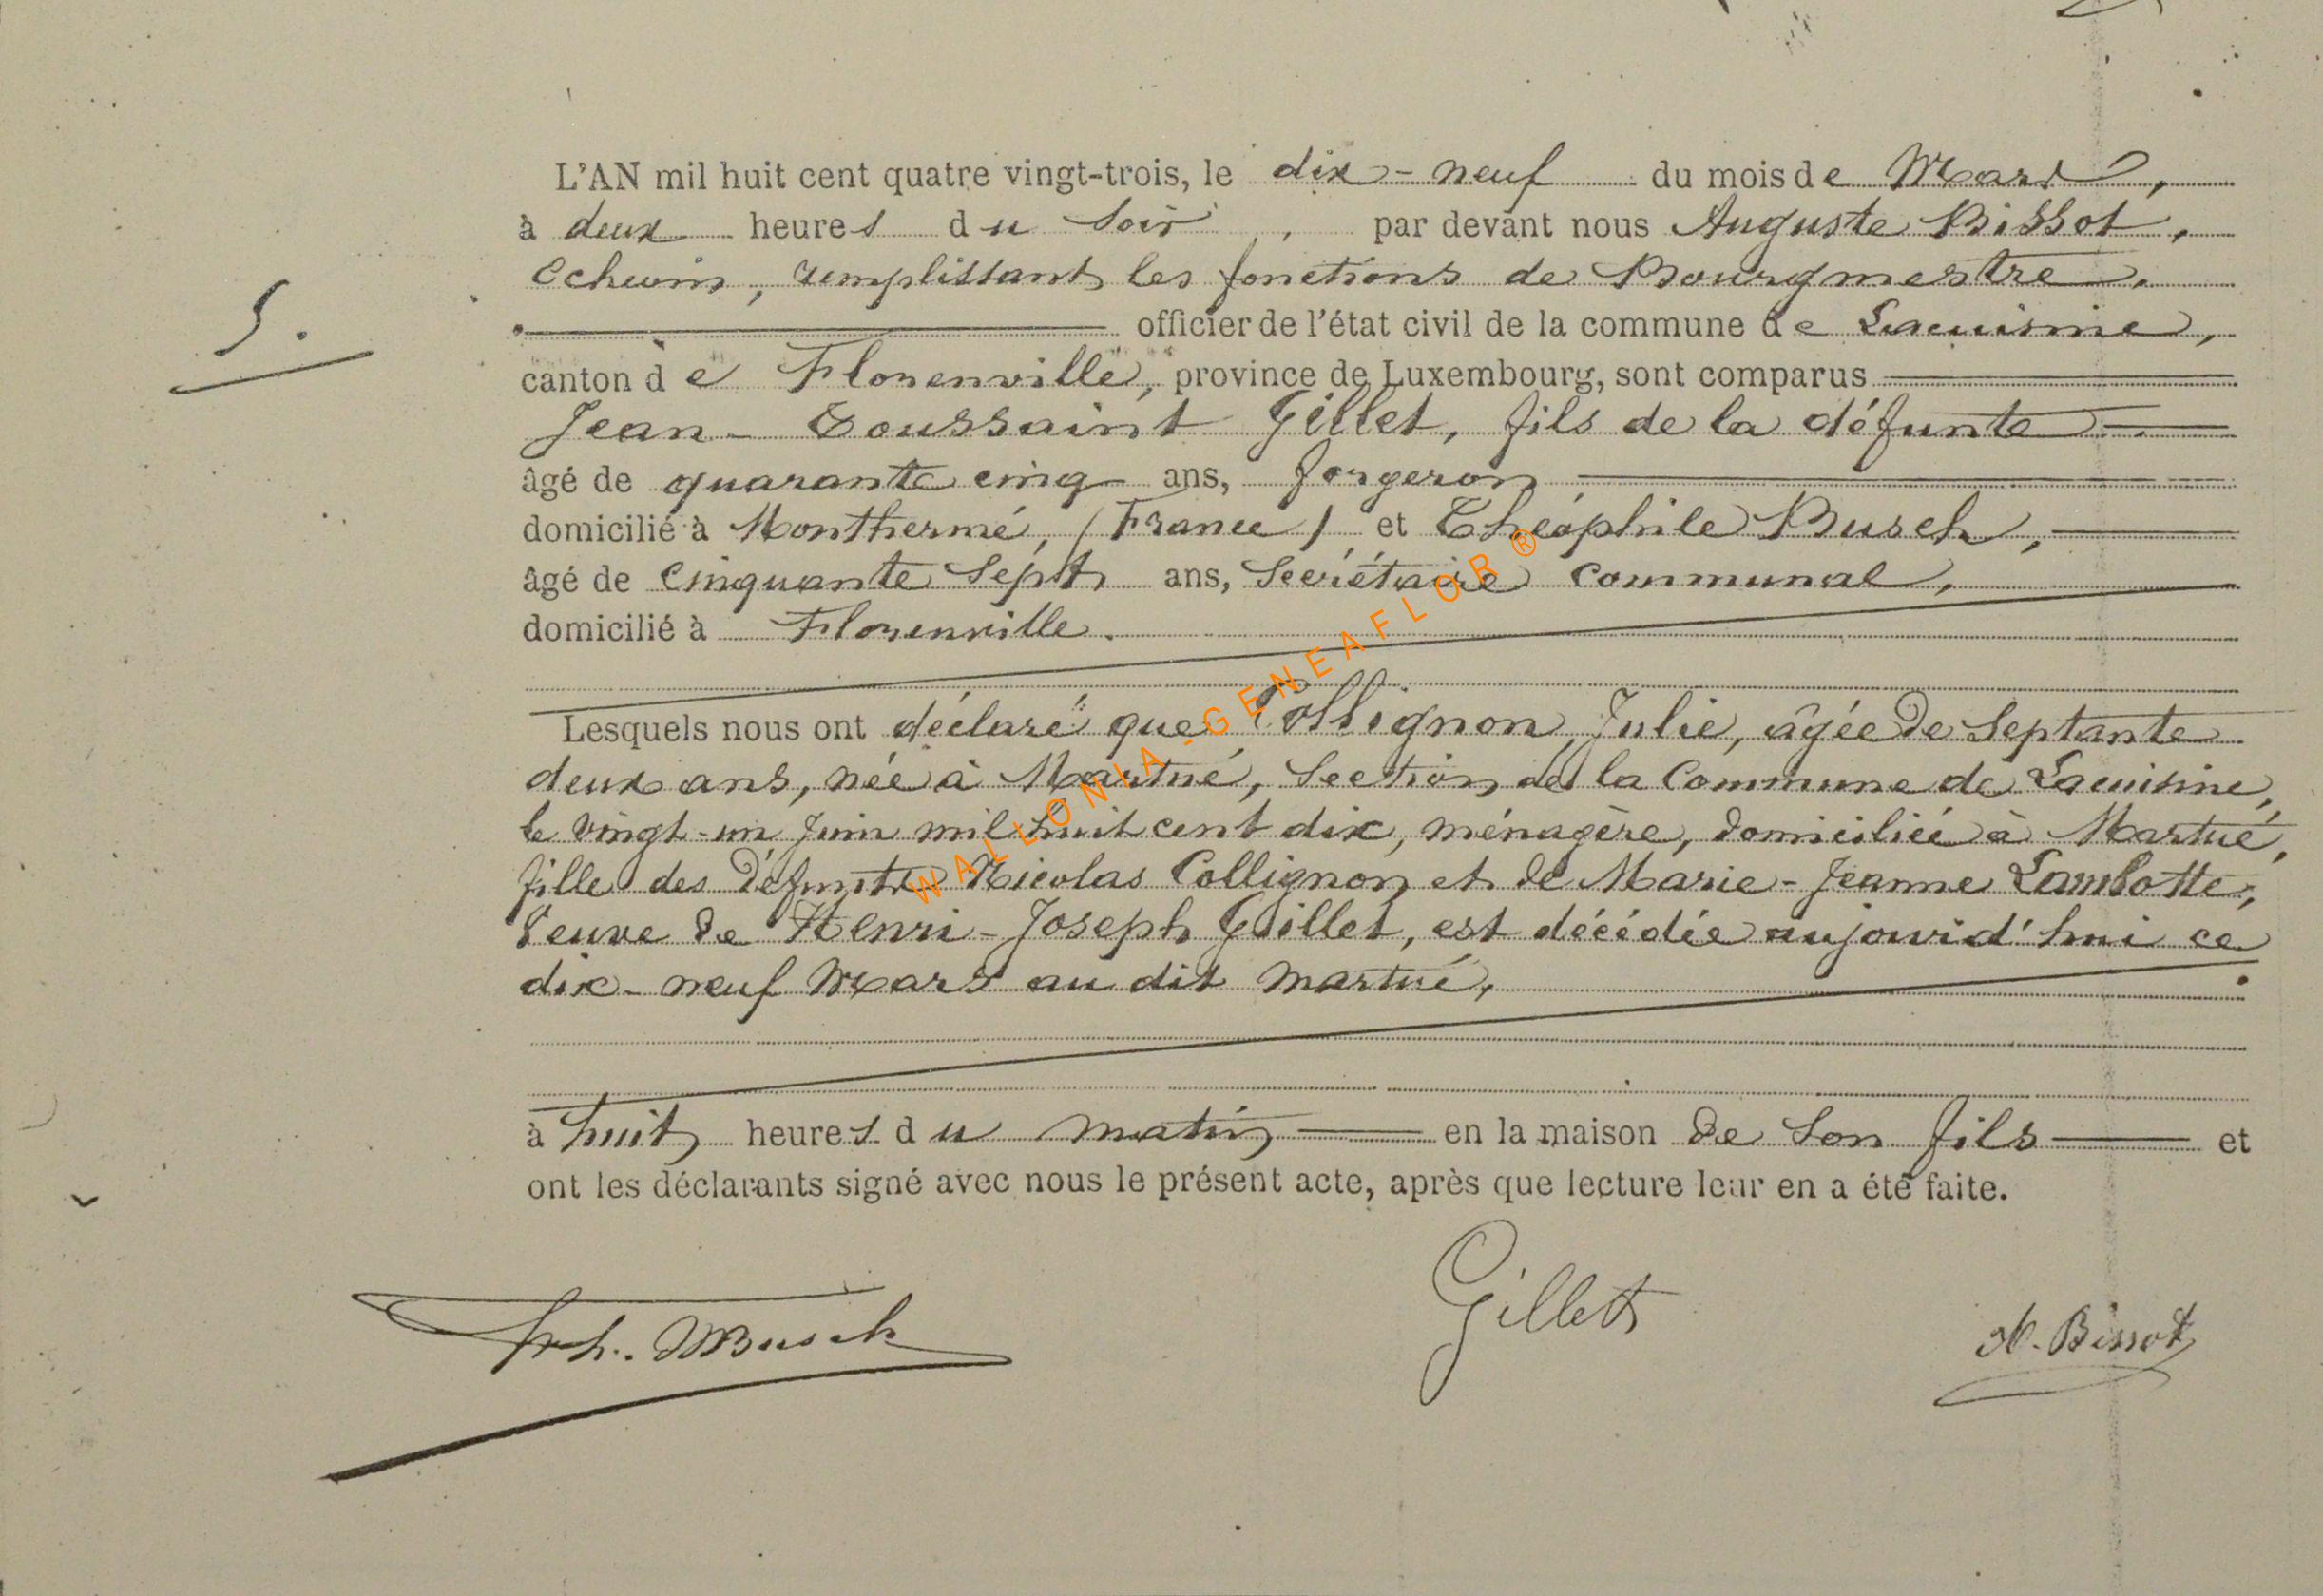 L'AN mil huit cent quatre vingt-trois, le dix-neuf du mois de Mars,
à deux heures du soir, par devant nous Auguste Bissot,
Echevin, remplissant les fonctions de Bourgmestre.
5.
officier de l'état civil de la commune de Lacuisine,
canton de Florenville, province de Luxembourg, sont comparus
Jean-Toussaint Gillet, fils de la défunte
âgé de quarante cinq ans, forgeron
domicilié à Monthermé, (France) et Théophile Busch,
âgé de Cinquante Sept ans, Secrétaire Communal,
domicilié à Florenville.
Lesquels nous ont déclaré que Collignon, Julie, âgée de Septante
deux ans, née à Martué, Section de la Commune de Lacuisine,
le vingt-un Juin mil huit cent dix, ménagère, domiciliée à Martué,
fille des défunts Nicolas Collignon et de Marie-Jeanne Lambotte,
Veuve de Henri-Joseph Gillet, est décédée aujourd'hui ce
dix-neuf Mars au dit Martué,
à huit heures du matin en la maison de Son fils et
ont les déclarants signé avec nous le présent acte, après que lecture leur en a été faite.
Busch Gillet A. Bissot
WALLONIA-GENEAFLOR ®